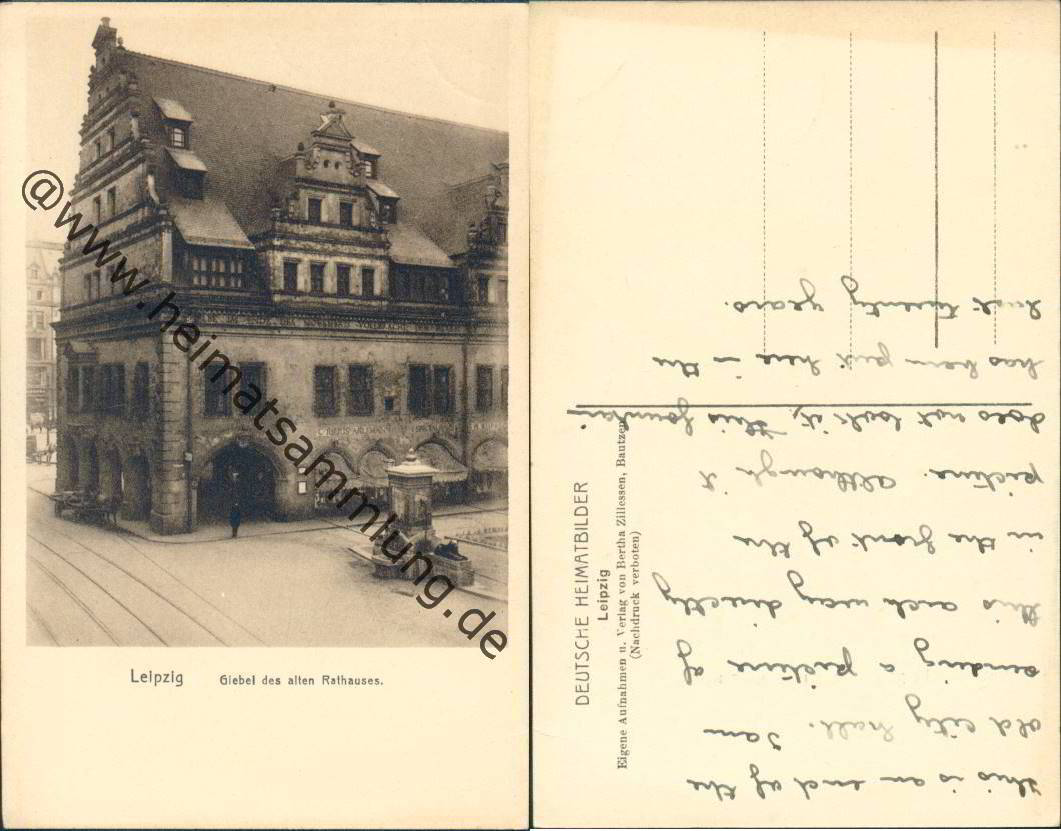 @www.heimatsammlung.de
Leipzig Giebel des alten Rathauses.
DEUTSCHE HEIMATBILDER
Leipzig
Eigene Aufnahmen u. Verlag von Bertha Zillessen, Bautzen
(Nachdruck verboten)
this is an end of the
old city hall. I am
sending a picture of
this arch way directly
in the front of the
picture. although it
does not look it, this fountain
has been put here in the
last twenty years.